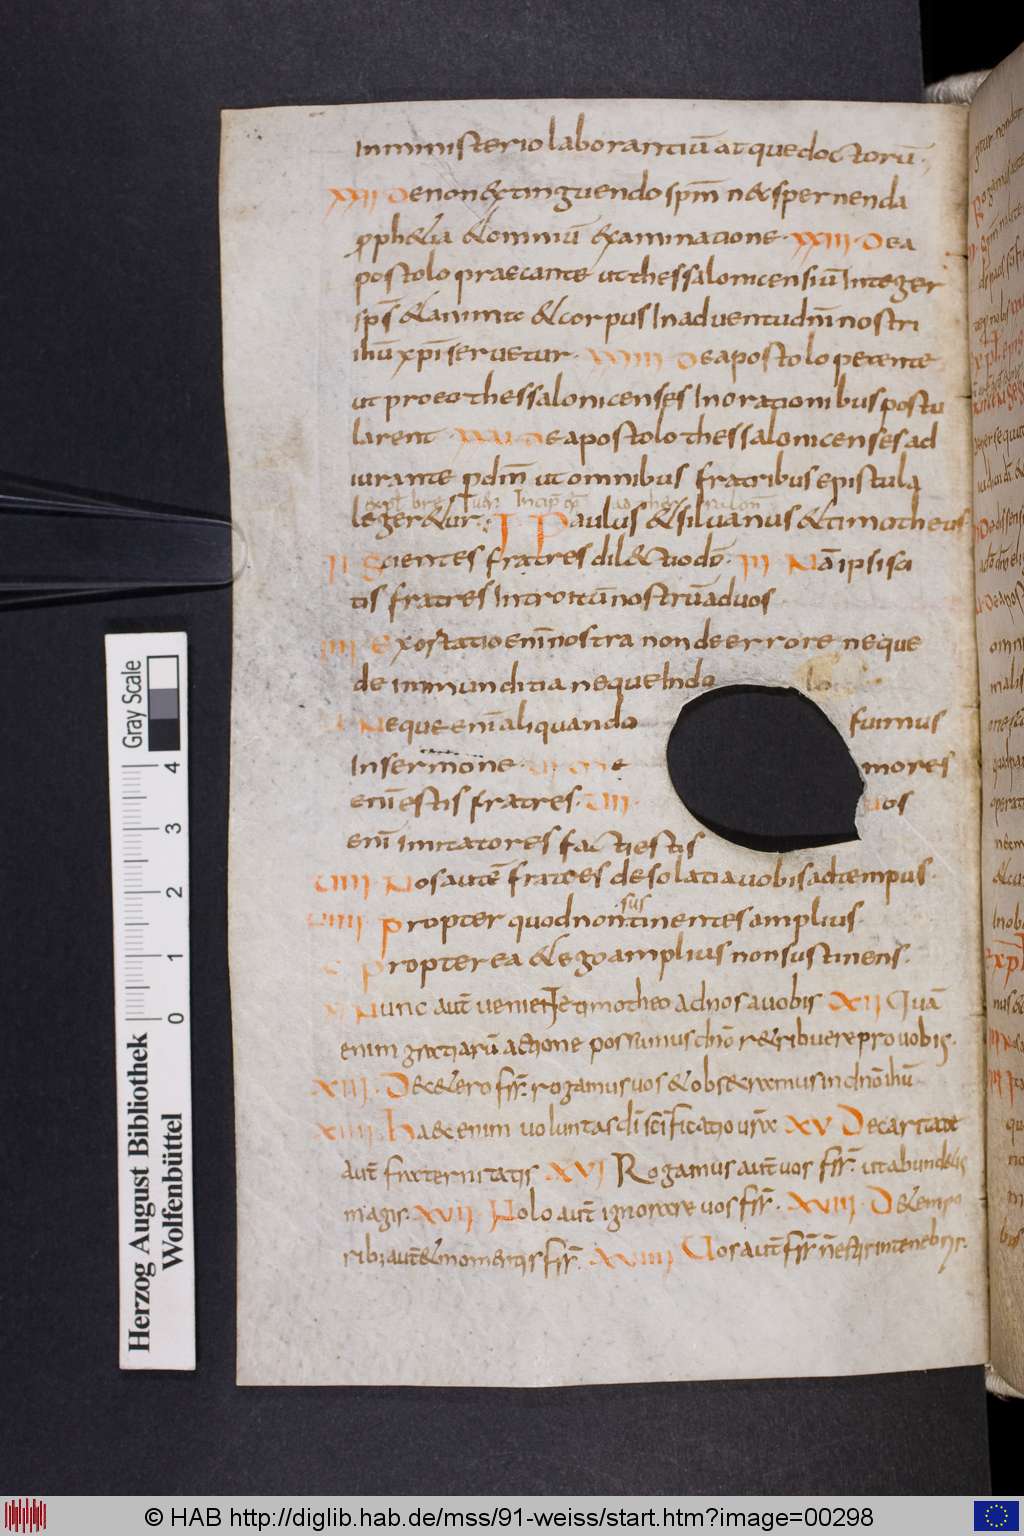 Inministerio laborantiū atque doctorū.
XXII De non extinguendo spm̄ nec spernenda
ꝓphetia et omniū examinatione. XXIII. De a
postolo praecante ut thessalonicensiū Integer
sps̄ et anima et corpus In aduentu dn̄i nostri
ihū xpī seruetur. XXIIII De apostolo petente
ut pro eo thessalonicenses In orationibus postu
larent. XXV. De apostolo thessalonicenses ad
iurante p dnm̄ ut omnibus fratribus epistula
legeretur. I Paulus et siluanus et timotheus
II Scientes fratres dilecti a do. III Nā ipsi sci
tis fratres Introitū nostrū ad uos
IIII Exortatio enī nostra non de errore neque
de inmunditia neque In do
Neque enī aliquando fuimus
In sermone. VI me mores
enī estis fratres. VII uos
enī imitatores facti estis
VIII. Nos autē fratres desolati a uobis ad tempus.
VIIII. Propter quod non sustinentes amplius.
X Propterea et ego amplius non sustinens.
XI Nunc aut̄ ueniente timotheo ad nos a uobis XII Quā
enim gratiarū actione possumus dn̄o retribuere pro uobis.
XIII. De cetero ffr̄. rogamus uos et obsecramus in dn̄o ihū
XIIII. Haec enim uoluntas dī scīficatio ur̄a XV De caritate
aut̄ fraternitatis XVI Rogamus aut̄ uos ffr̄. ut abundetis
magis. XVII. Nolo aut̄ ignorare uos ffr̄. XVIII. De tempo
ribus aut̄ et momentis ffr̄. XVIIII Uos aut̄ ffr̄ n̄ estis in tenebris.
Gray Scale
4
3
2
1
0
Herzog August Bibliothek
Wolfenbüttel
© HAB http://diglib.hab.de/mss/91-weiss/start.htm?image=00298